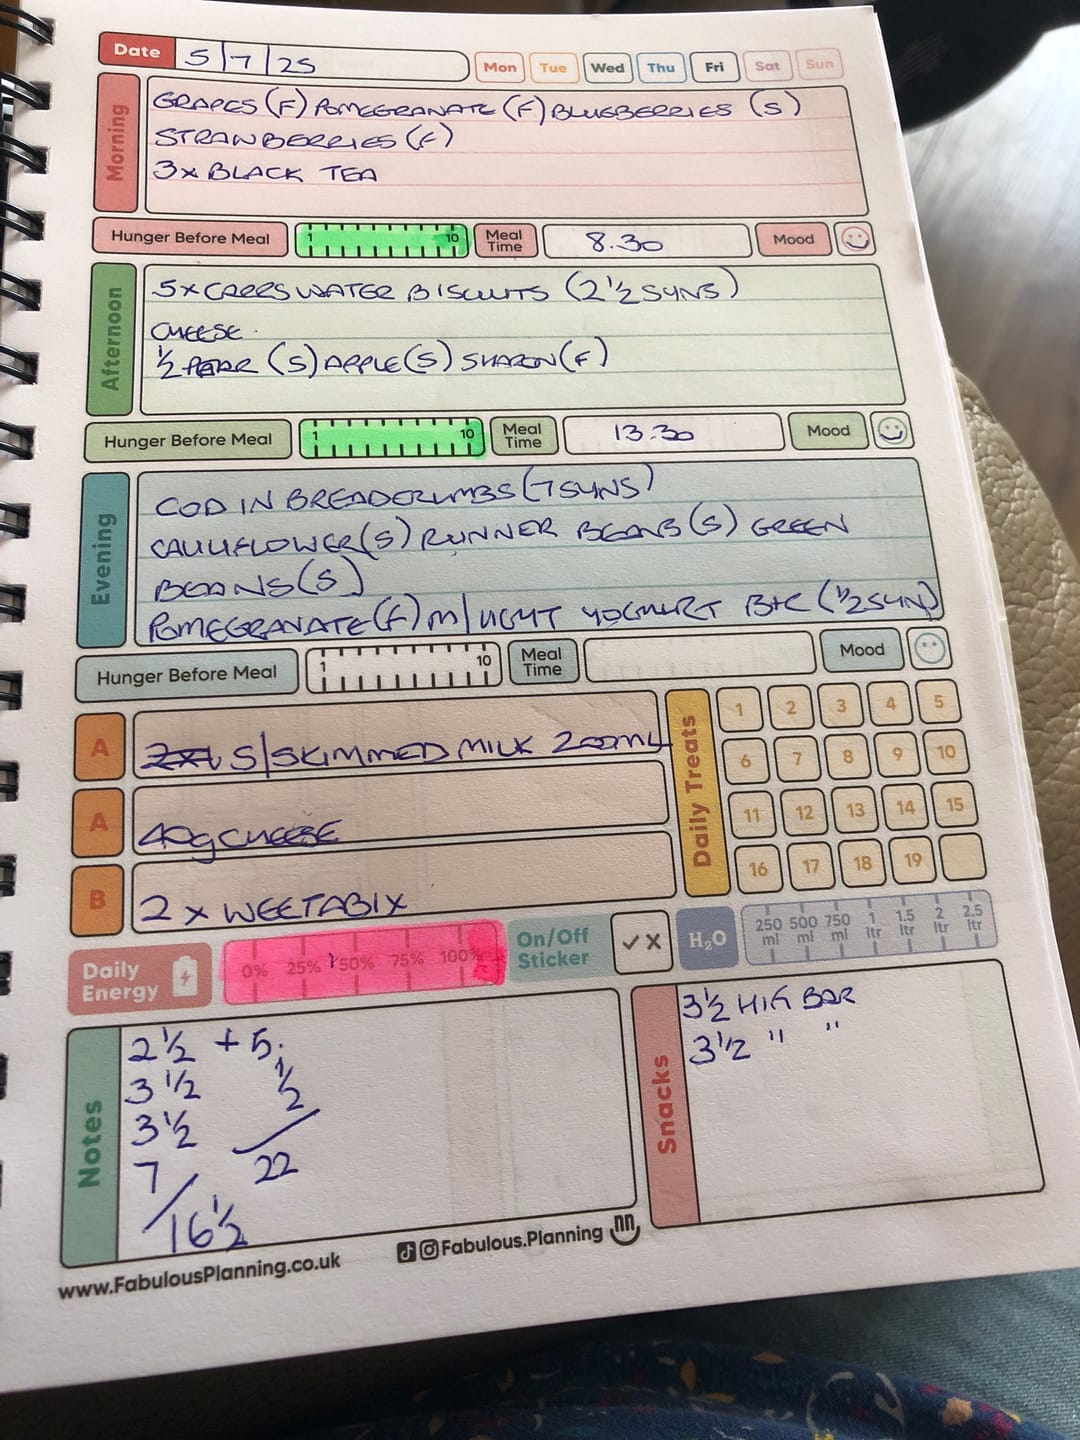 Date 5/7/25 Mon Tue Wed Thu Fri Sat Sun
Morning
GRAPES (F) POMEGRANATE (F) BLUEBERRIES (S)
STRAWBERRIES (F)
3x BLACK TEA
Hunger Before Meal 1 10 Meal Time 8.30 Mood
Afternoon
5x CARRS WATER BISCUITS (2½ SYNS)
CHEESE.
½ PEAR (S) APPLE (S) SHARON (F)
Hunger Before Meal 1 10 Meal Time 13.30 Mood
Evening
COD IN BREADCRUMBS (7 SYNS)
CAULIFLOWER (S) RUNNER BEANS (S) GREEN
BEANS (S)
POMEGRANATE (F) M/LIGHT YOGHURT B+C (½ SYN)
Hunger Before Meal 1 10 Meal Time Mood
A S/SKIMMED MILK 200ML
A 40g CHEESE
B 2 x WEETABIX
Daily Treats
1 2 3 4 5
6 7 8 9 10
11 12 13 14 15
16 17 18 19
Daily Energy 0% 25% 50% 75% 100%
On/Off Sticker ✓ X
H₂O 250 ml 500 ml 750 ml 1 ltr 1.5 ltr 2 ltr 2.5 ltr
Notes
2½ + 5.
3½ ½
3½
7 22
16½
Snacks
3½ HIFI BAR
3½ " "
www.FabulousPlanning.co.uk
Fabulous.Planning